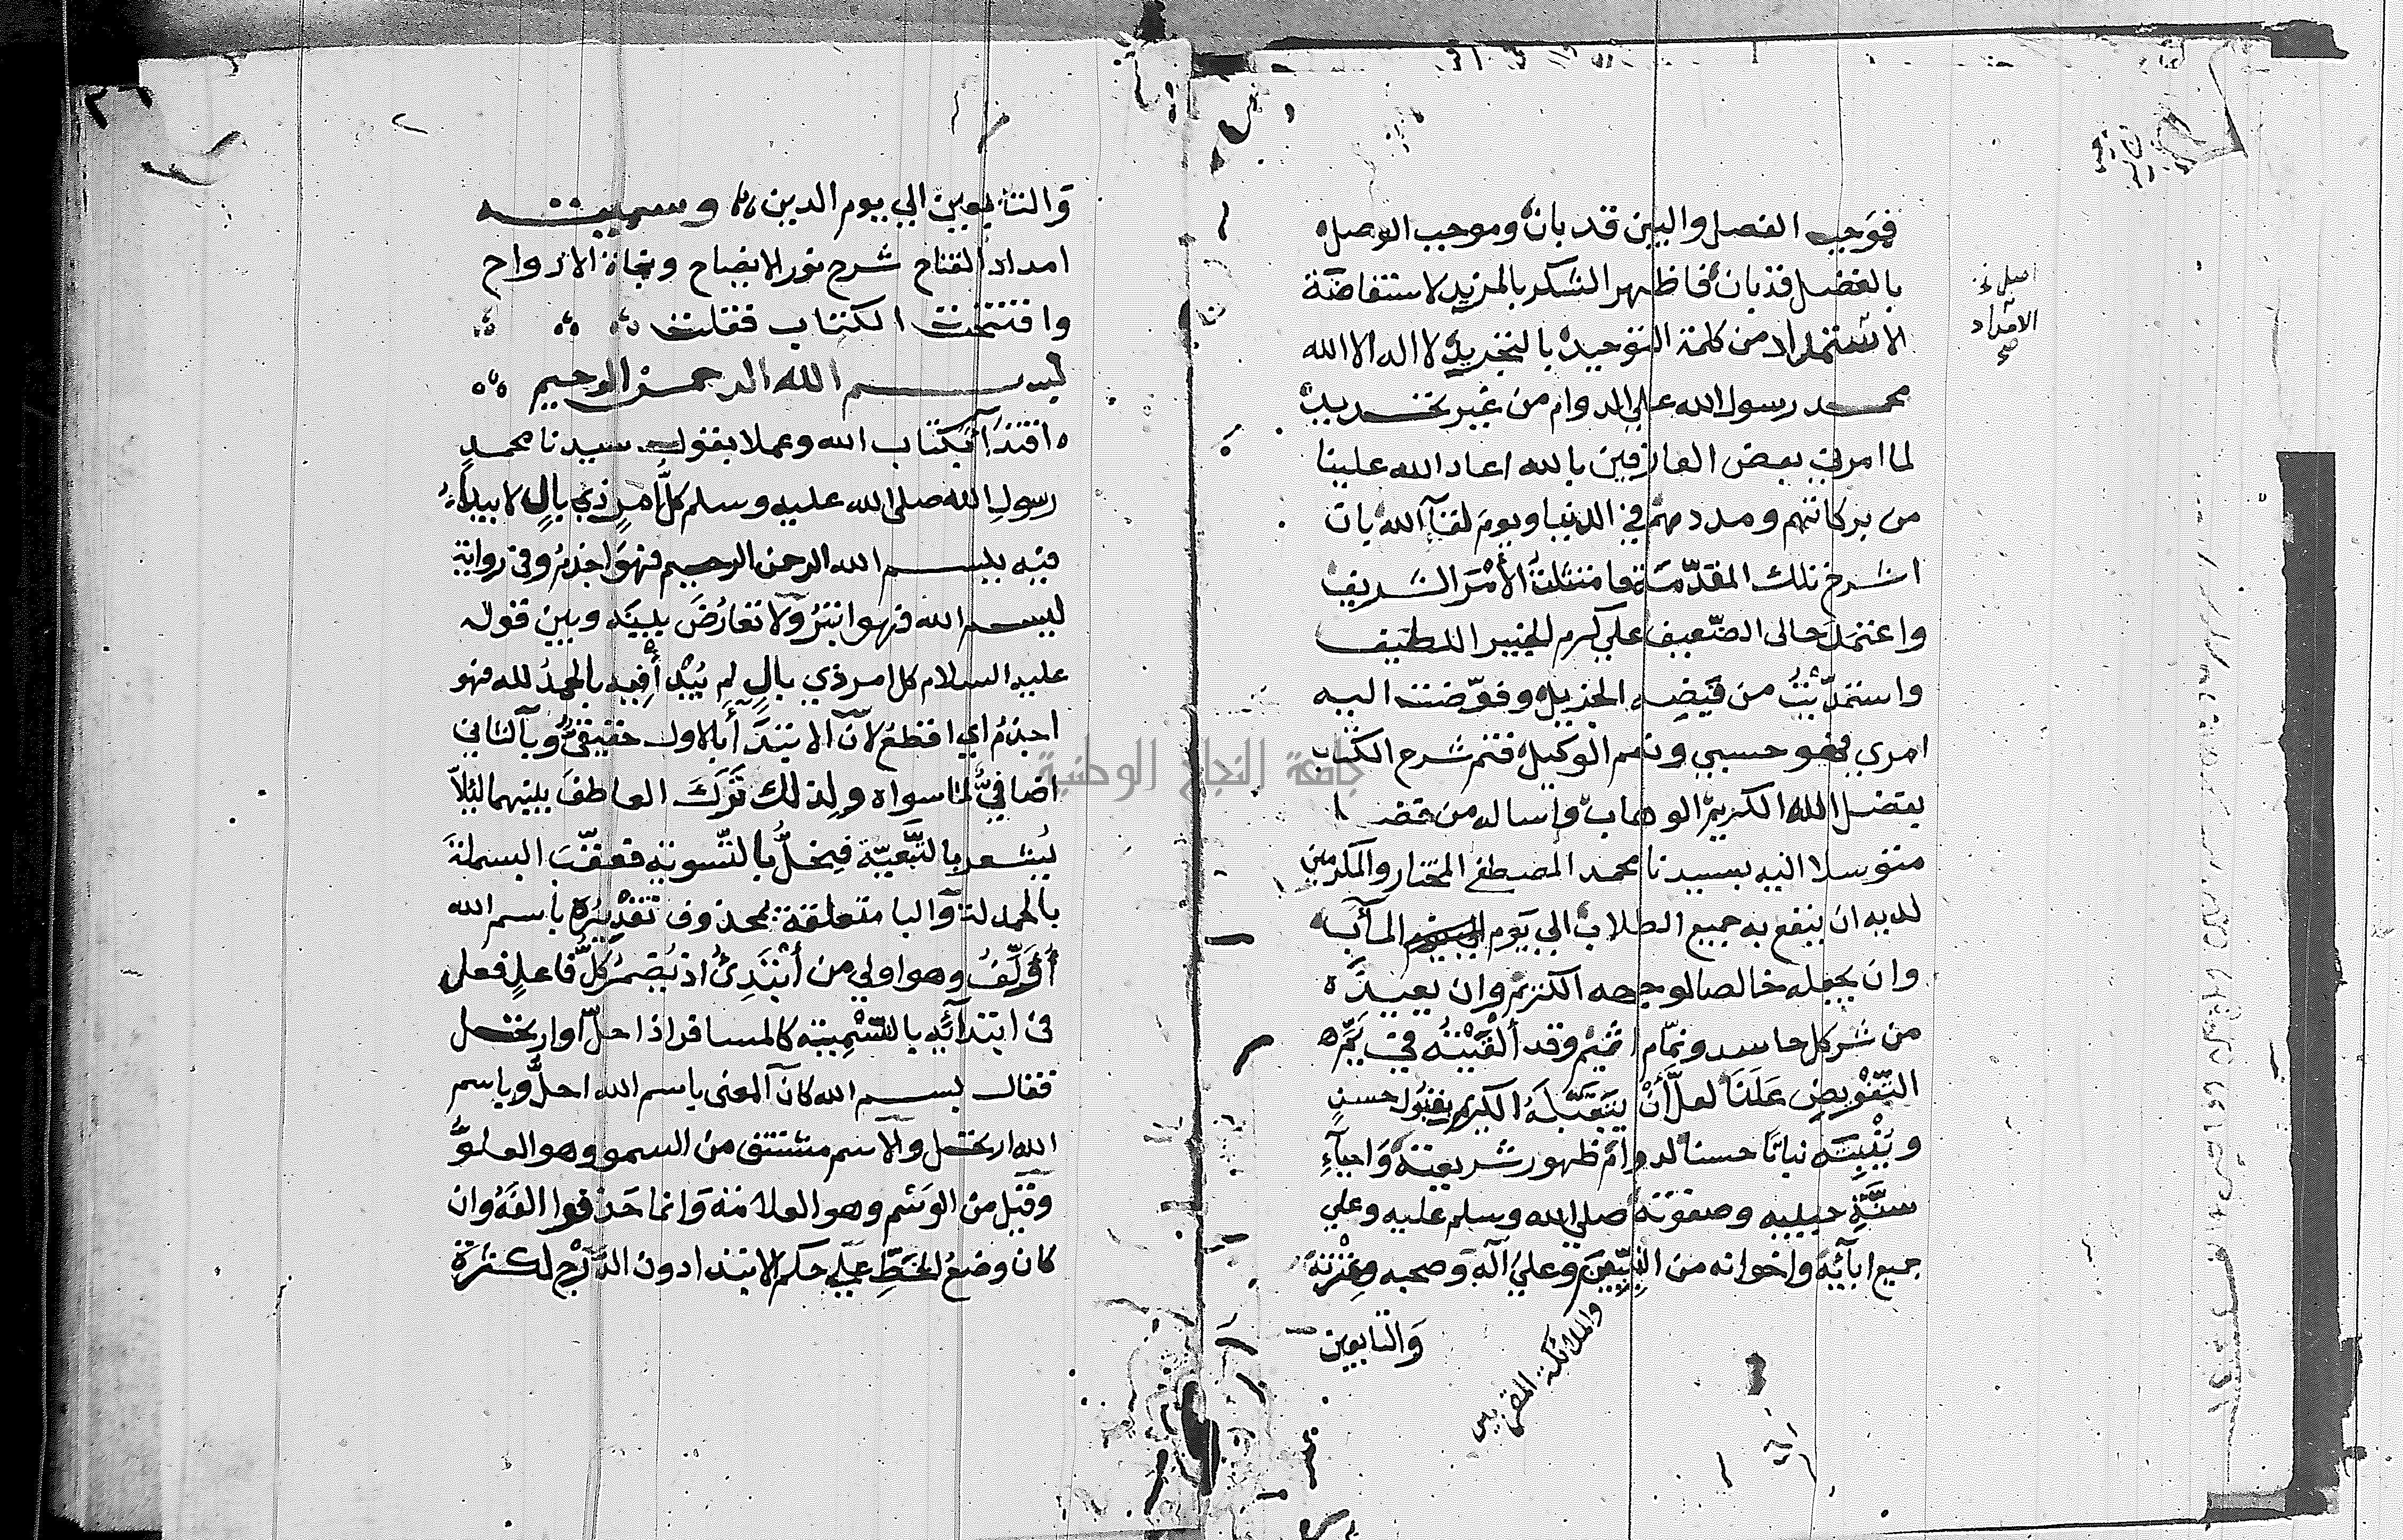 فوجب الفصل والبين قد بان وموجب الوصل
بالفضل قد بان فاظهر الشكر بالمزيد لاستفاضة
الاستمداد من كلمة التوحيد بالتجريد لا اله الا الله
محمد رسول الله علي الدوام من غير تحديد
لما امرني بعض العارفين بالله اعاد الله علينا
من بركاتهم ومددهم في الدنيا ويوم لقآ الله بان
اشرح تلك المقدّمة فامتثلت الأمر الشريف
واعتمد حالى الضّعيف علي كرم الخبير اللطيف
واستمدّيت من فيضه الجزيل وفوّضت اليه
امري فهو حسبي ونعم الوكيل فتم شرح الكتاب
بفضل الله الكريم الوهاب واساله من فضله
متوسلا اليه بسيدنا محمد المصطفى المختار والمكرمين
لديه ان ينفع به جميع الطلاب الي يوم المآب
وان يجعله خالصا لوجهه الكريم وان يعيذه
من شر كل حاسد ونمّام اثيم وقد ألقيته في يمّ
التّفويض علنا لعلّ أنْ يتقبّله الكريم بقبول حسن
وينبته نباتا حسنا لدوام ظهور شريعته واحيآء
سنّة حبيبه وصفوته صلي الله وسلم عليه وعلي
جميع ابآئه واخوانه من النبيّين وعلي آله وصحبه وعترته
والملائكة المقربين
والتابعين
اصل
الامداد
صح
٢
والتابعين الي يوم الدين وسميته
امداد الفتاح شرح نور الايضاح ونجاة الارواح
وافتتحت الكتاب فقلت
بسم الله الرحمن الرحيم
اقتدآ بكتاب الله وعملا بقول سيدنا محمد
رسول الله صلى الله عليه وسلم كلّ امر ذي بال لا يبدأ
فيه ببسم الله الرحمن الرحيم فهو اجذم وفي رواية
ببسم الله فهو ابتر ولا تعارض بينه وبين قوله
عليه السلام كل امر ذي بال لم يبدأ فيه بالحمد لله فهو
اجذم اي اقطع لانّ الابتدآ بالاول حقيقيّ وبالثاني
اضافيّ لما سواه ولذلك ترك العاطف بينهما لئلّا
يشعر بالتبعيّة فيخلّ بالتسوية فعقّب البسملة
بالحمدلة والبا متعلقة بمحذوف تقديره باسم الله
أؤلّف وهو اولي من أبتدئ اذ يضمر كلّ فاعل فعله
في ابتدآئه بالتّسمية كالمسافر اذا حلّ او ارتحل
فقال بسم الله كان المعنى باسم الله احلّ وباسم
الله ارتحل والاسم مشتق من السمو وهو العلوّ
وقيل من الوسم وهو العلامة وانما حذفوا الفه وان
كان وضع الخطّ علي حكم الابتدا دون الدّرج لكثرة
جامعة النجاح الوطنية